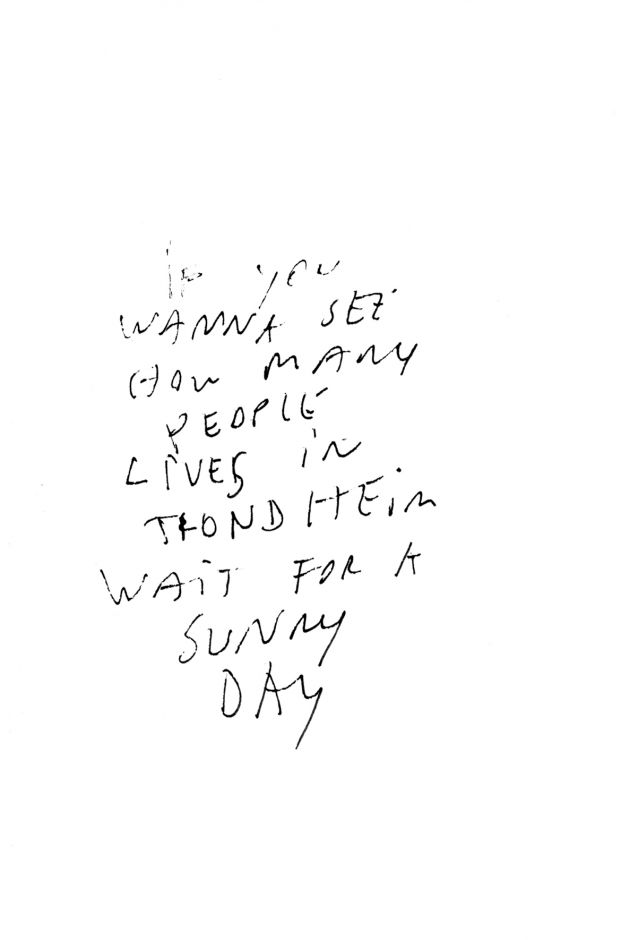 IF YOU
WANNA SEE
HOW MANY
PEOPLE
LIVES iN
TRONDHEiM
WAiT FOR A
SUNNY
DAY